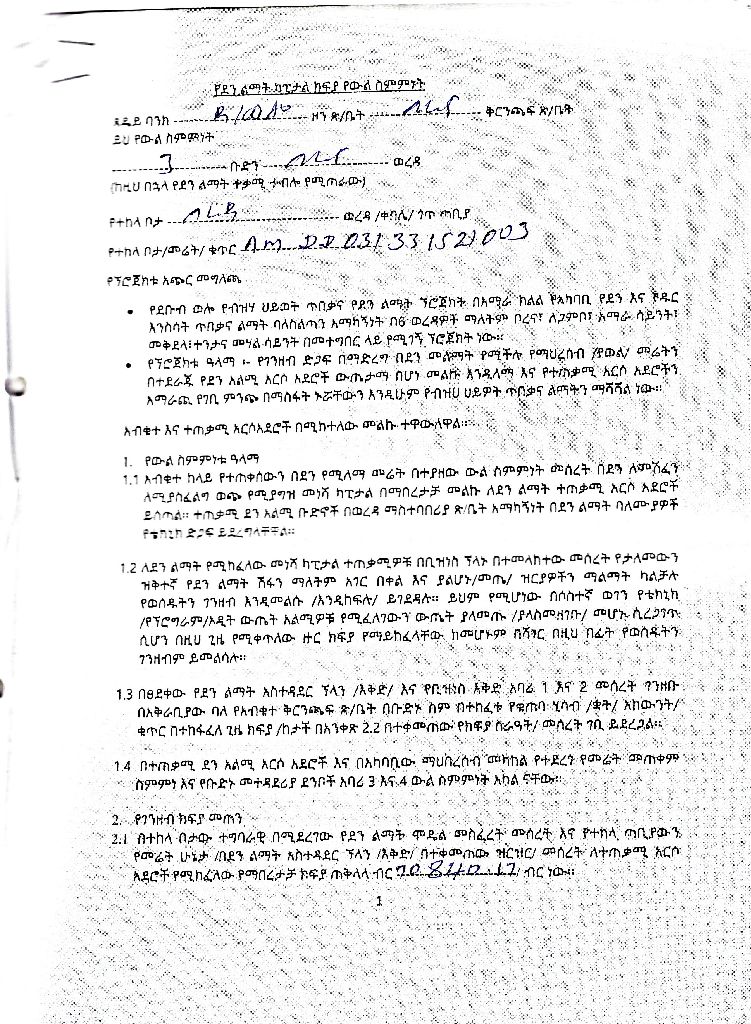 የደን ልማት ካፒታል ክፍያ የውል ስምምነት
ጸዴይ ባንክ ዞን ጽ/ቤት ቅርንጫፍ ጽ/ቤት
ይህ የውል ስምምነት
ቡድን ወረዳ
(ከዚህ በኋላ የደን ልማት ተቃሚ ተብሎ የሚጠራው)
የተከላ ቦታ ወረዳ /ቀበሌ/ ጎጥ ጣቢያ
የተከላ ቦታ/መሬት/ ቁጥር AM DD 031331521003
የፕሮጀክቱ አጭር መግለጫ
• የደቡብ ወሎ የብዝሃ ህይወት ጥበቃና የደን ልማት ፕሮጀክት በአማራ ክልል የአካባቢ የደን እና የዱር
እንስሳት ጥበቃና ልማት ባለስልጣን አማካኝነት በ6 ወረዳዎች ማለትም ቦረና፣ ለጋምቦ፣ አማራ ሳይንት፣
መቅደላ፣ተንታና መሃል ሳይንት በመተግበር ላይ የሚገኝ ፕሮጀክት ነው።
• የፕሮጀክቱ ዓላማ ፦ የገንዘብ ድጋፍ በማድረግ በደን መልማት የሚችሉ የማህረሰብ /የወል/ መሬትን
በተደራጁ የደን አልሚ አርሶ አደሮች ውጤታማ በሆነ መልኩ እንዲለማ እና የተጠቃሚ አርሶ አደሮችን
አማራጪ የገቢ ምንጭ በማስፋት ኑሯቸውን እንዲሁም የብዝሀ ህይዎት ጥበቃና ልማትን ማሻሻል ነው።
አብቁተ እና ተጠቃሚ አርሶአደሮች በሚከተለው መልኩ ተዋውለዋል።
1. የውል ስምምነቱ ዓላማ
1.1 አብቁተ ከላይ የተጠቀሰውን በደን የሚለማ መሬት በተያዘው ውል ስምምነት መሰረት በደን ለመሸፈን
ለሚያስፈልግ ወጭ የሚያግዝ መነሻ ካፒታል በማበረታቻ መልኩ ለደን ልማት ተጠቃሚ አርሶ አደሮች
ይሰጣል። ተጠቃሚ ደን አልሚ ቡድኖች በወረዳ ማስተባበሪያ ጽ/ቤት አማካኝነት በደን ልማት ባለሙያዎች
የቴክኒክ ድጋፍ ይደረግላቸዋል።
1.2 ለደን ልማት የሚከፈለው መነሻ ካፒታል ተጠቃሚዎቹ በቢዝነስ ፕላኑ በተመላከተው መሰረት የታለመውን
ዝቅተኛ የደን ልማት ሽፋን ማለትም አገር በቀል እና ያልሆኑ/መጤ/ ዝርያዎችን ማልማት ካልቻሉ
የወሰዱትን ገንዘብ እንዲመልሱ /እንዲከፍሉ/ ይገደዳሉ። ይህም የሚሆነው በሶስተኛ ወገን የቴክኒክ
/የፕሮግራም/ኦዲት ውጤት አልሚዎቹ የሚፈለገውን ውጤት ያለመጡ /ያላስመዘገቡ/ መሆኑ ሲረጋገጥ
ሲሆን በዚሀ ጊዜ የሚቀጥለው ዙር ክፍያ የማይከፈላቸው ከመሆኑም በሻገር በዚህ በፊት የወሰዱትን
ገንዘብም ይመልሳሉ።
1.3 በፀደቀው የደን ልማት አስተዳደር ፕላን /እቅድ/ እና የቢዝነስ እቅድ አባሪ 1 እና 2 መሰረት ገንዘቡ
በአቅራቢያው ባለ የአብቁተ ቅርንጫፍ ጽ/ቤት በቡድኑ ስም በተከፈተ የቁጠባ ሂሳብ /ቋት/ አካውንት/
ቁጥር በተከፋፈለ ጊዜ ክፍያ /ከታች በአንቀጽ 2.2 በተቀመጠው የክፍያ ስራዓት/ መሰረት ገቢ ይደረጋል።
1.4 በተጠቃሚ ደን አልሚ አርሶ አደሮች እና በአካባቢው ማህበረሰብ መካከል የተደረገ የመሬት መጠቀም
ስምምነ እና የቡድኑ መተዳደሪያ ደንቦች አባሪ 3 እና 4 ውል ስምምነት አካል ናቸው።
2. የገንዘብ ክፍያ መጠን
2.1 በተከላ ቦታው ተግባራዊ በሚደረገው የደን ልማት ሞዴል መስፈረት መሰረት እና የተከላ ጣቢያውን
የመሬት ሁኔታ /በደን ልማት አስተዳደር ፕላን /እቅድ/ በተቀመጠው ዝርዝር/ መሰረት ለተጠቃሚ አርሶ
አደሮች የሚከፈለው የማበረታቻ ክፍያ ጠቅላላ ብር 70840.17/ ብር ነው።
1